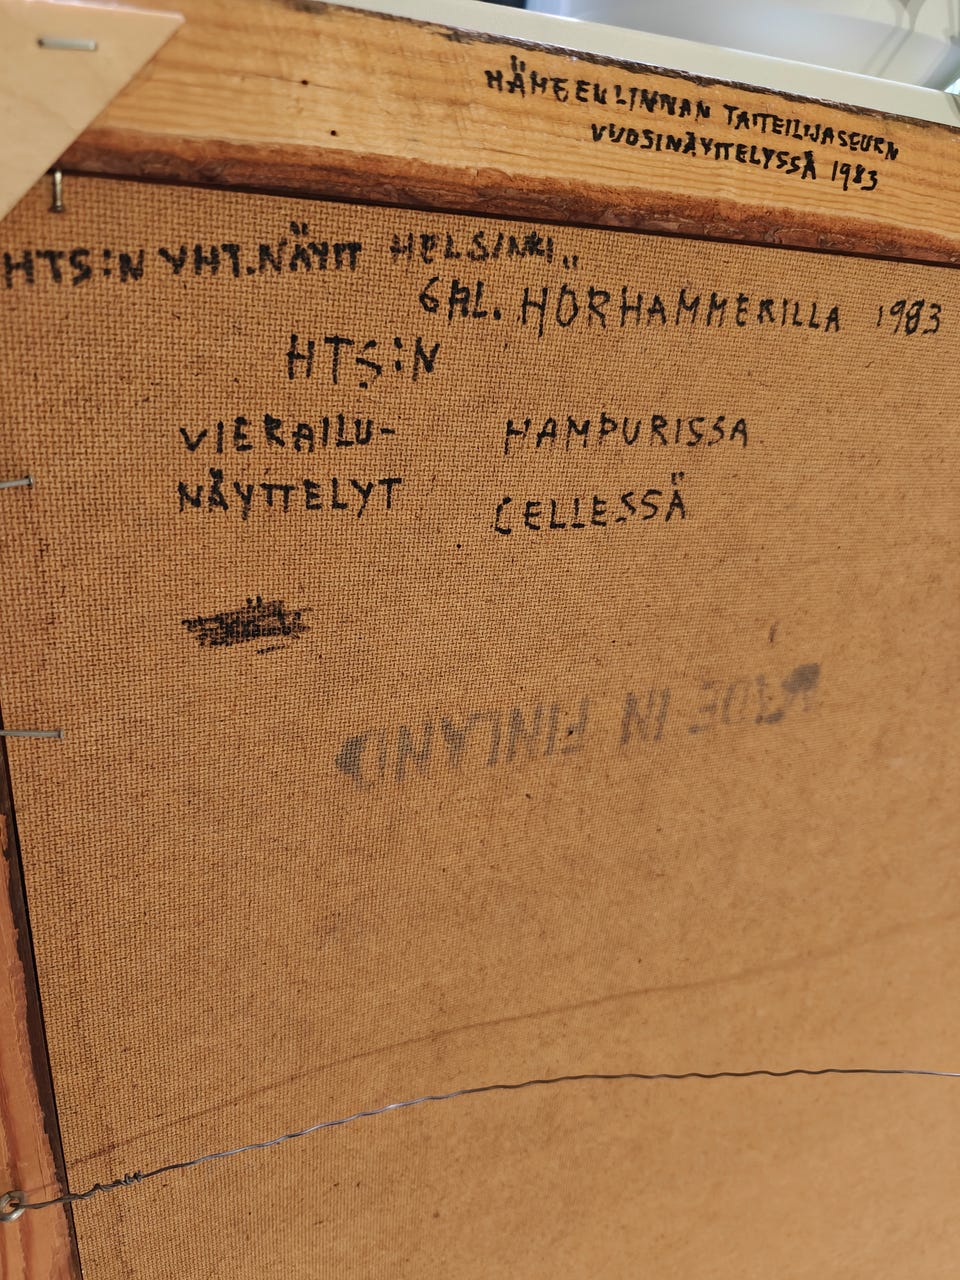 HÄMEENLINNAN TAITEILIJASEURN
VUOSINÄYTTELYSSÄ 1983
HTS:N YHT.NÄYTT HELSINKI,,
GAL. HÖRHAMMERILLA 1983
HTS:N
VIERAILU- HAMPURISSA
NÄYTTELYT CELLESSÄ
MADE IN FINLAND